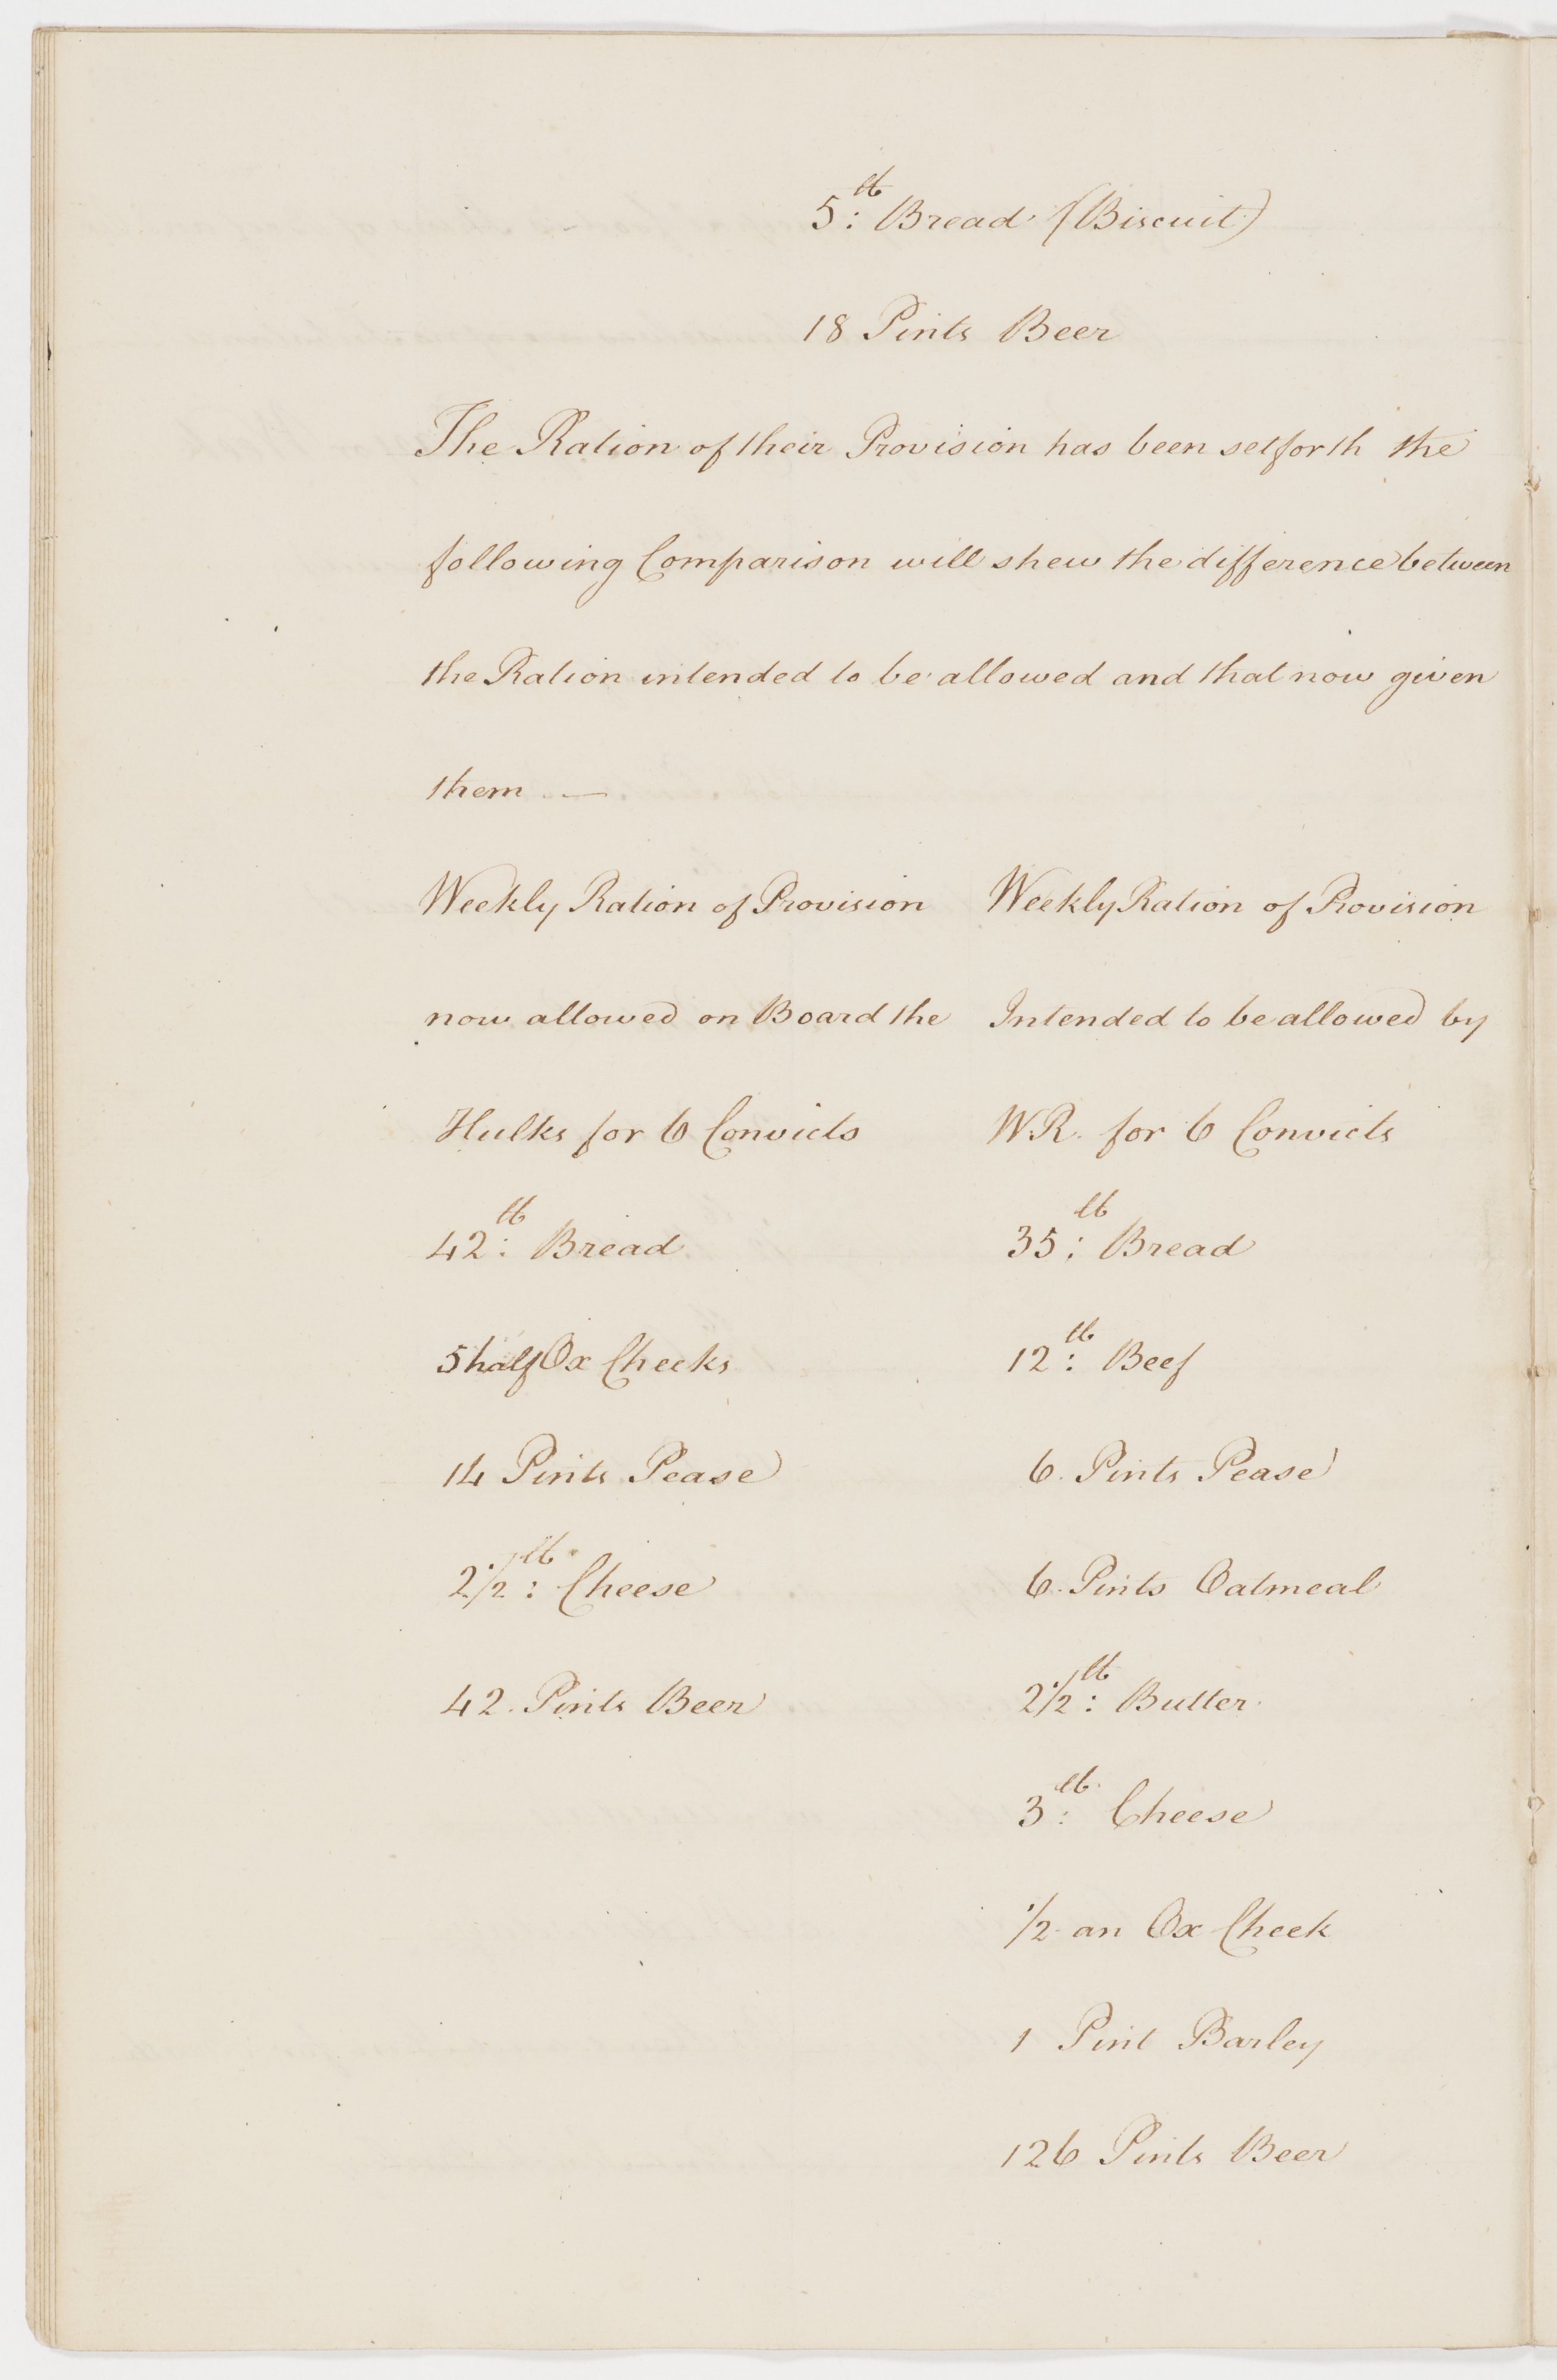 5 lb: Bread (Biscuit)
18 Pints Beer
The Ration of their Provision has been setforth the
following Comparison will shew the difference between
the Ration intended to be allowed and that now given
them —
Weekly Ration of Provision
now allowed on Board the
Hulks for 6 Convicts
42 lb: Bread
5 half Ox Cheeks
14 Pints Pease
2 1/2 lb: Cheese
42. Pints Beer
Weekly Ration of Provision
Intended to be allowed by
W.R. for 6 Convicts
35 lb: Bread
12 lb: Beef
6. Pints Pease
6. Pints Oatmeal
2 1/2 lb: Butter
3 lb: Cheese
1/2 an Ox Cheek
1 Pint Barley
126 Pints Beer